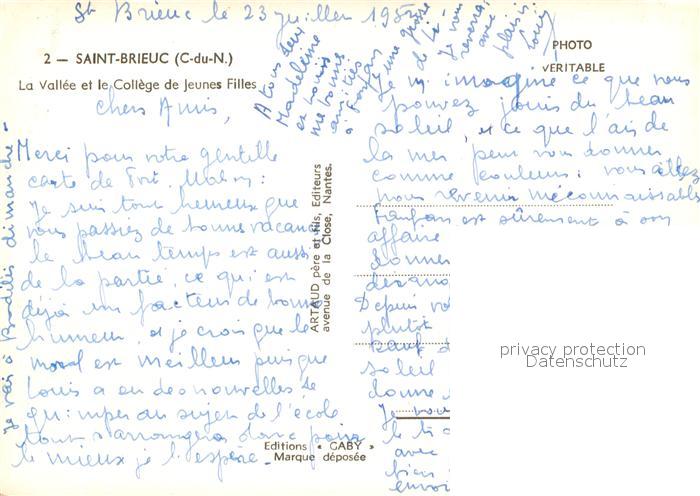 St Brieuc le 23 juillet 195
2 — SAINT-BRIEUC (C-du-N.)
La Vallée et le Collège de Jeunes Filles
chers Amis,
Merci pour votre gentille
carte de Fort. Mahon :
Je suis tout heureux que
vous passiez de bonnes vacances
le beau temps est aussi
de la partie, ce qui est
déjà un facteur de bonne
humeur, et je crois que le
moral est meilleur puisque
Louis a eu des nouvelles de
Quimper au sujet de l'école
tout s'arrangera donc pour
le mieux je l'espère -
Je vais à dimanche -
A tous deux
Madeleine
et Louis
mes bonnes
amitiés
à Fanfan
une grosse
Je vous
reverrai
avec
plaisir
Louis
PHOTO
VÉRITABLE
ARTAUD père et fils, Editeurs
avenue de la Close, Nantes.
Editions « GABY »
Marque déposée
Je m'imagine ce que vous
pouvez jouir du beau
soleil, et ce que l'air de
la mer peut vous donner
comme couleurs : vous allez
nous revenir méconnaissables
Fanfan est sûrement à son
affaire
donner
Depuis vo
plutôt
sauf d
soleil
donne
Je vou
le
avec
bien
envoi
privacy protection
Datenschutz